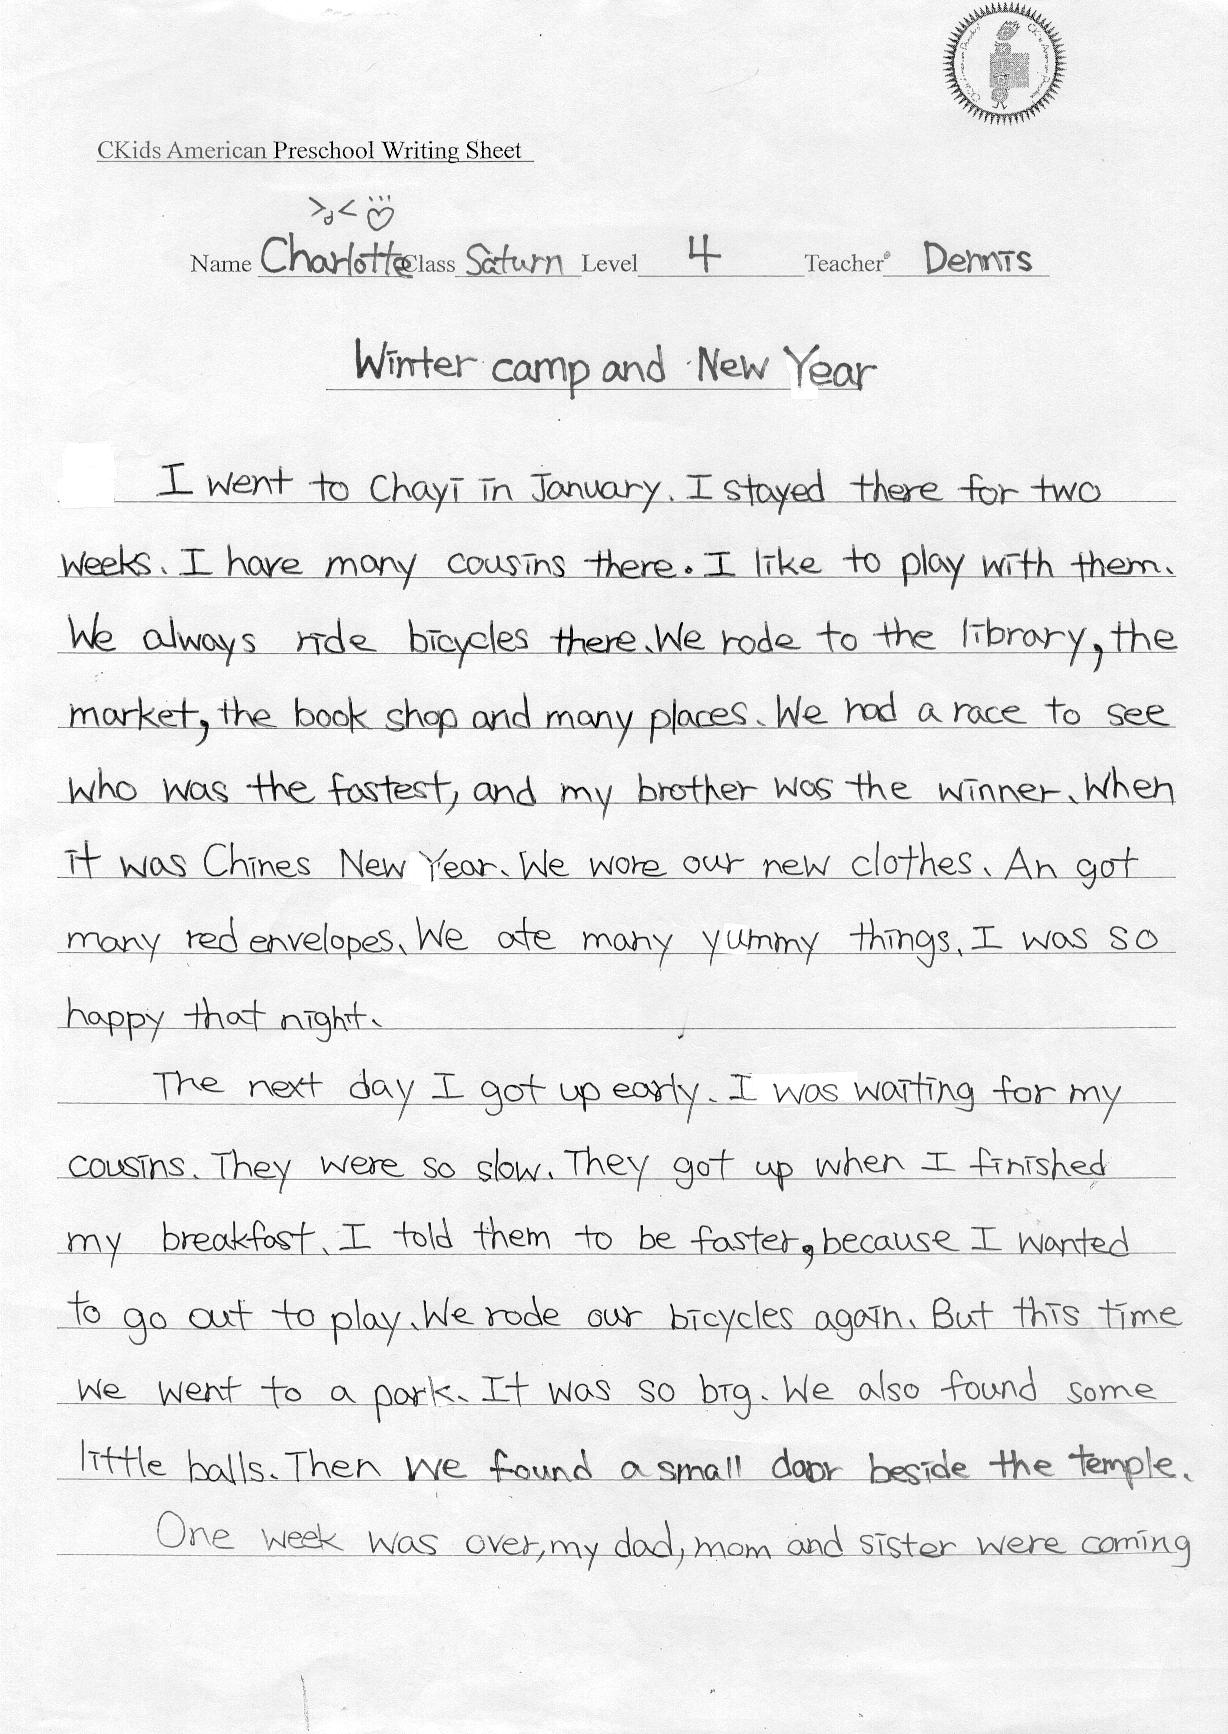 CKids American Preschool Writing Sheet
Name Charlotte Class Saturn Level 4 Teacher Dennis
Winter camp and New Year
I went to Chayi in January. I stayed there for two
weeks. I have many cousins there. I like to play with them.
We always ride bicycles there. We rode to the library, the
market, the book shop and many places. We had a race to see
who was the fastest, and my brother was the winner. When
it was Chines New Year. We wore our new clothes. An got
many red envelopes. We ate many yummy things. I was so
happy that night.
The next day I got up early. I was waiting for my
cousins. They were so slow. They got up when I finished
my breakfast. I told them to be faster, because I wanted
to go out to play. We rode our bicycles again. But this time
we went to a park. It was so big. We also found some
little balls. Then we found a small door beside the temple.
One week was over, my dad, mom and sister were coming